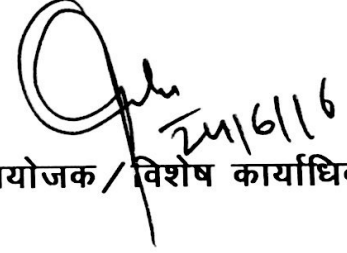 24/6/16
योजक / विशेष कार्याधि